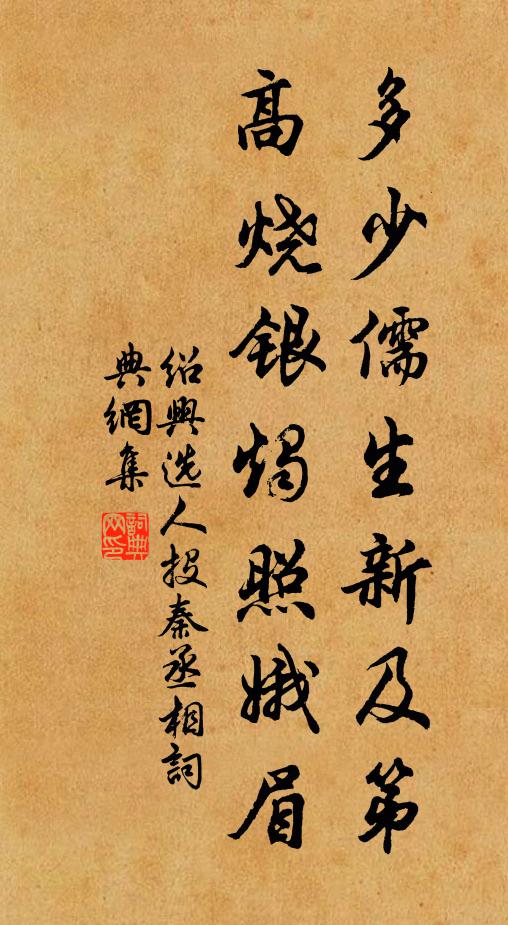 多少儒生新及第
高烧银烛照娥眉
绍興选人投秦丞相詞
典網集
詞典網印